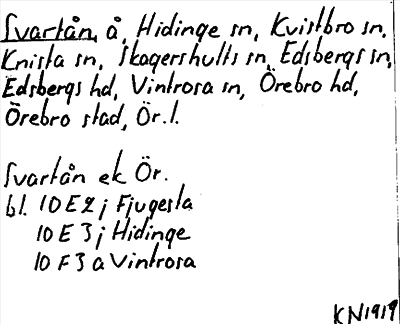 Svartån, å, Hidinge sn, Kvistbro sn,
Knista sn, Skagershults sn, Edsbergs sn,
Edsbergs hd, Vintrosa sn, Örebro hd,
Örebro stad, Ör. l.
Svartån ek Ör.
bl. 10 E 2 j Fjugesta
10 E 3 j Hidinge
10 F 3 a Vintrosa
KN 1919